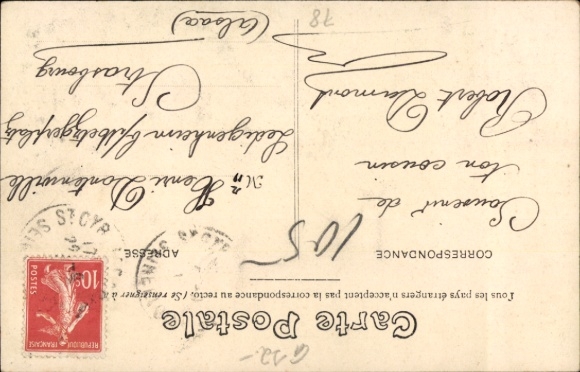 Carte Postale
Tous les pays étrangers n'acceptent pas la correspondance au recto. (Se renseigner à
CORRESPONDANCE
ADRESSE
Souvenir de
ton cousin
Robert
Mr Henri Dontenville
Ledigenheim
Strasbourg
(alsace)
105
78
G12-
10c
POSTES
REPUBLIQUE FRANÇAISE